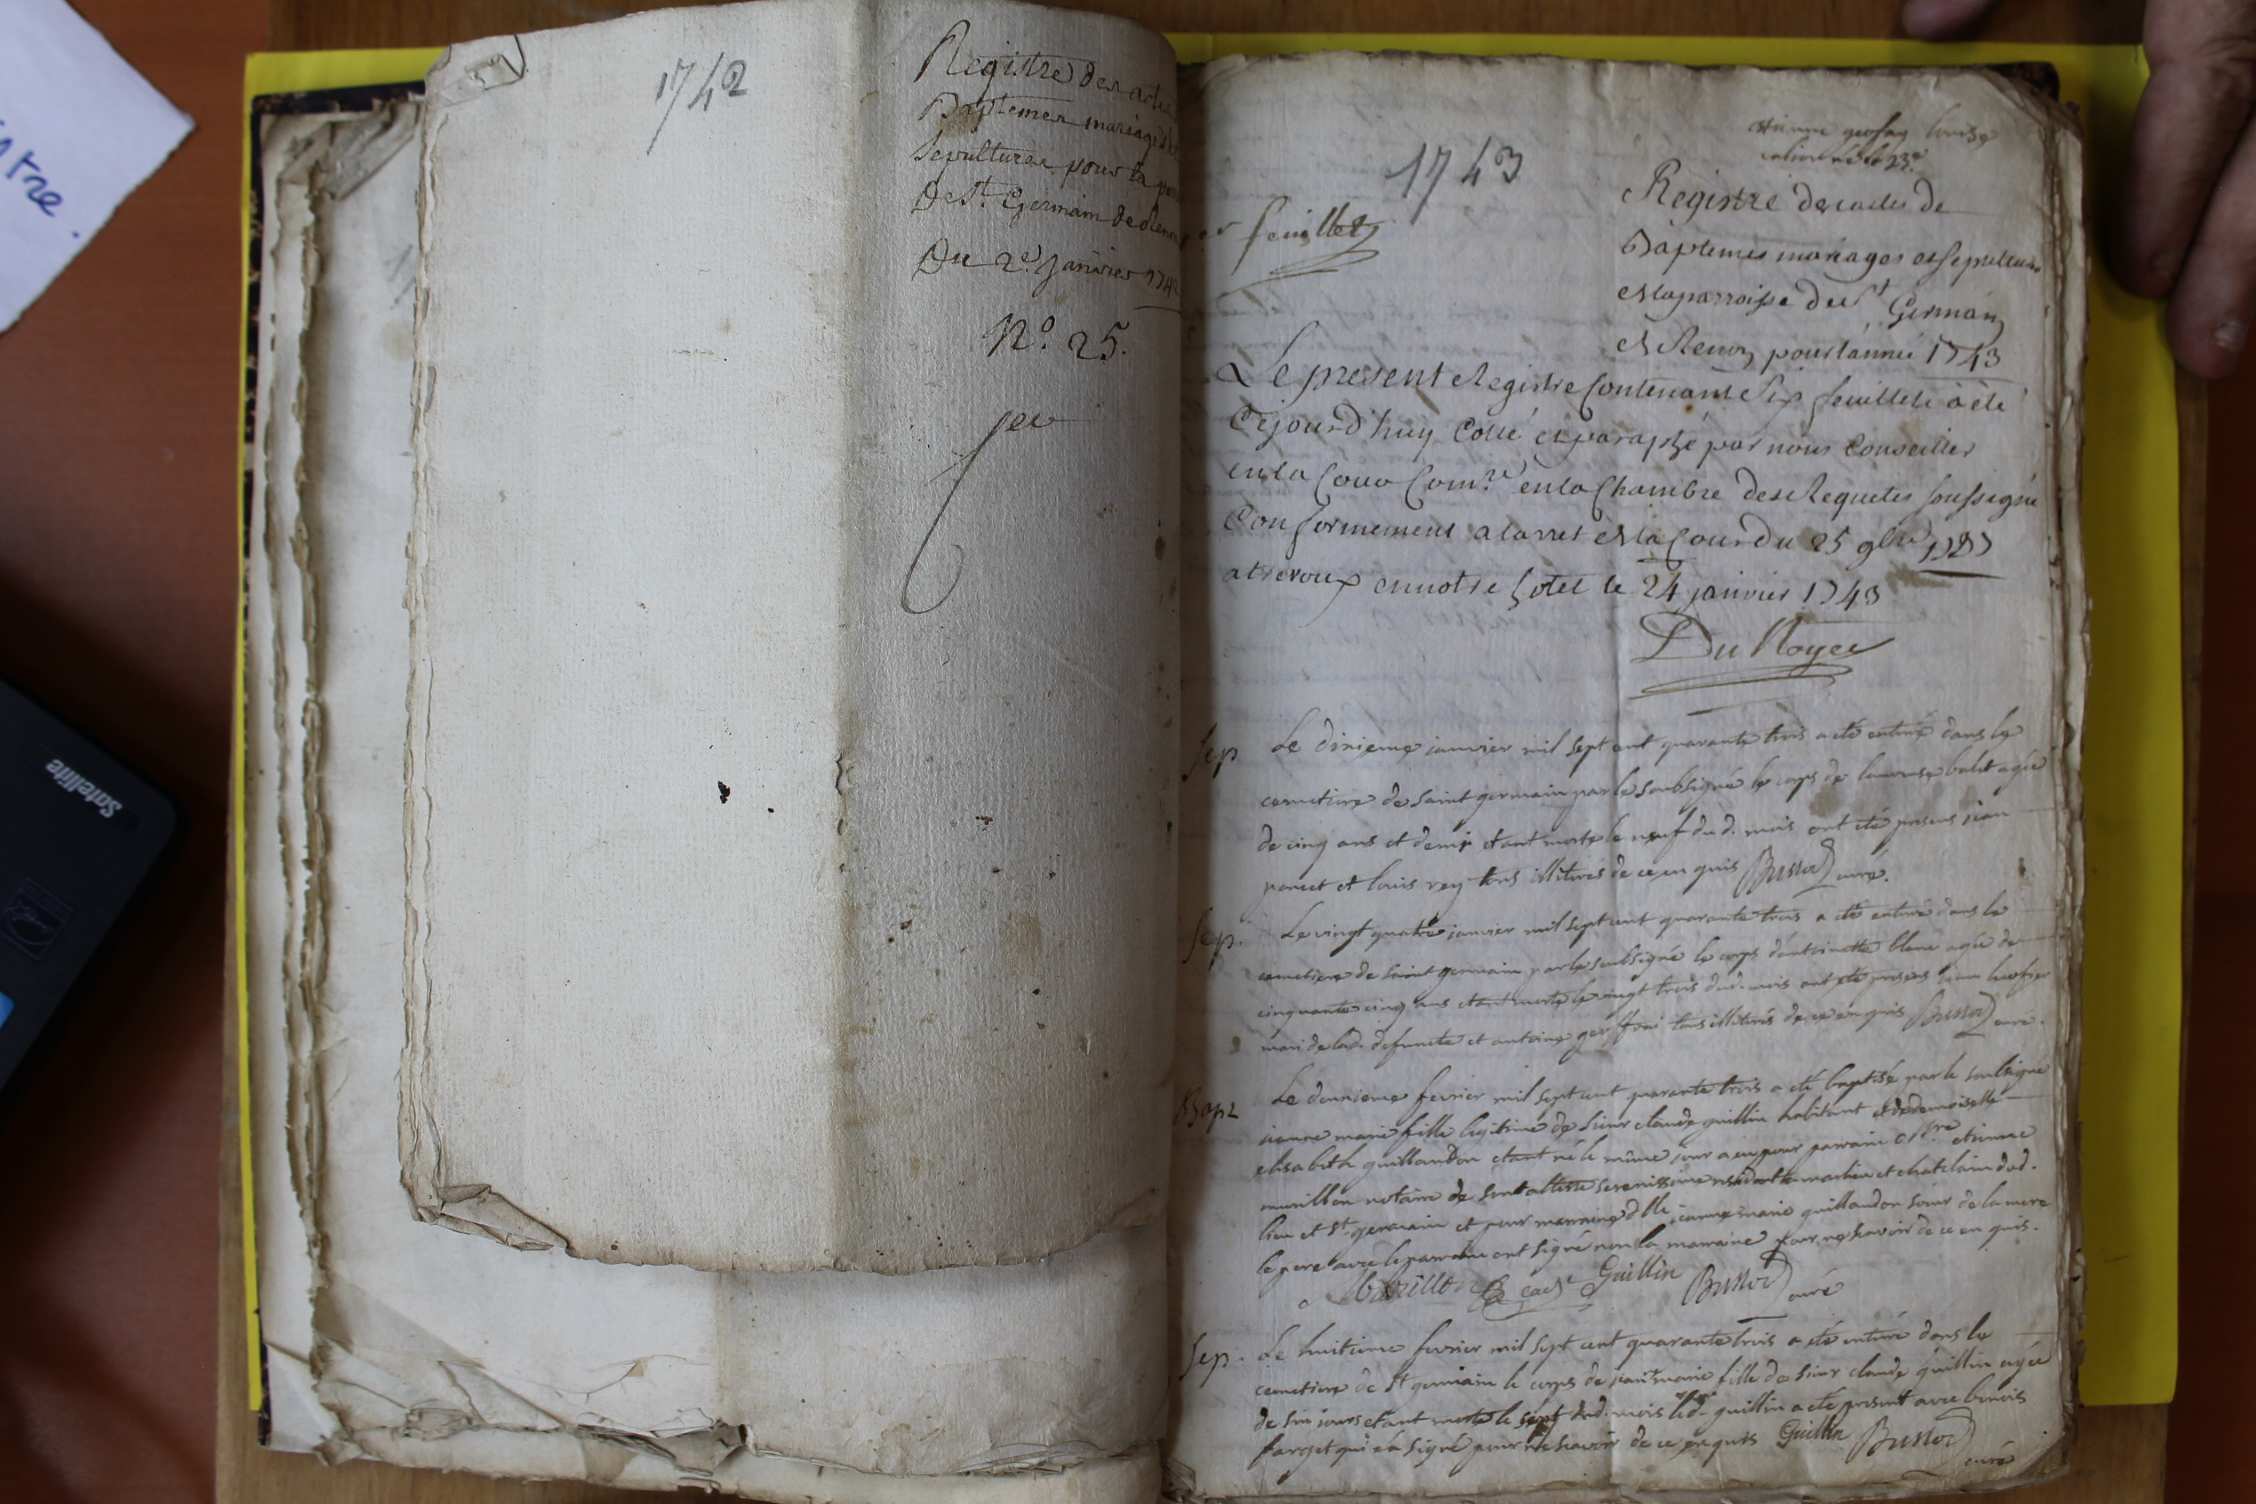 1742
Registre des actes
Baptemes mariages
Sepultures pour la
De St. Germain de Renon
Du 2e. janvier 174
No. 25.
1er
1743
Registre des actes de
Baptemes mariages et sepultures
de la parroisse de St Germain
de Renon pour l'année 1743
er feuillet
Le present Registre Contenant Six feuillets à été
Cejourd'huy Cotté et paraphé par nous Conseiller
en la Cour Comre. en la Chambre des Requetes soussigné
Conformement a larret de la Cour du 25 9bre 1737
a trevoux en notre hotel le 24 janvier 1743
Du Noyer
Sep Le dixieme janvier mil sept cent quarante trois a été enterré dans le
cemetiere de Saint germain par le soubsigné le corps de balet agée
de cinq ans et demi etant morte le neuf dud. mois ont été presens jean
poncet et louis rey tous illiterés de ce enquis curé.
Sep. Le vingt quatre janvier mil sept cent quarante trois a été enterré dans le
cemetiere de saint germain par le soubsigné le corps d'antoinette blanc agée de
cinquante cinq ans etant morte le vingt trois dud. mois ont été presens jean
mari de lad. defuncte et antoine tous illiterés de ce enquis curé.
Bapt Le deuxieme fevrier mil sept cent quarante trois a été baptisée par le soubsigné
jeanne marie fille legitime de sieur claude guillin habitant et de demoiselle
elisabeth guillaudon etant né le même jour a eu pour parrain etienne
morillon notaire de son altesse serenissime et chatelain dud.
lieu et St. germain et pour marraine dlle jeanne marie guillaudon soeur de la mere
le pere avec le parrain ont signé non la marraine pour ne scavoir de ce enquis.
Morillon Guillin curé
Sep. Le huitieme fevrier mil sept cent quarante trois a été enterré dans le
cemetiere de St germain le corps de jeanne marie fille de sieur claude guillin agée
de six jours etant morte le sept dud. mois led. guillin a été present avec benois
farget qui n'a signé pour ne scavoir de ce enquis Guillin
curé
Satellite